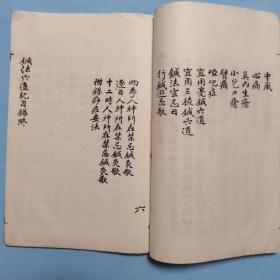 中風
心痛
鼻內生瘡
小兒口瘡
臂痛
啞吧症
宜用毫鍼六道
宜用三稜鍼六道
鍼法宜忌日
行鍼避忌歌
四季人神所在禁忌鍼灸歌
逐日人神所在禁忌鍼灸歌
十二時人神所在禁忌鍼灸歌
附錄存症要法
鍼法六道記目錄終
六